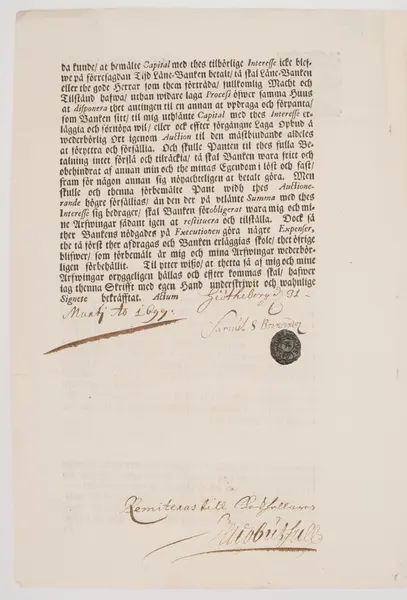 da kunde/ at bemälte Capital med thes tilbörlige Interesse icke blef-
we på förresagdan Tijd Läne-Banken betalt/ tå skal Läne-Banken
eller the gode Herrar som them förträda/ fullkomlig Macht och
Tilstånd hafwa/ uthan widare laga Process öfwer samma Huus
at disponera thet antingen til en annan at updraga och förpanta/
som Banken sitt/ til mig uthlänte Capital med thes Interesse er-
läggia och förnöya wil/ eller ock effter förgångne Laga Opbud å
wederbörlig Ort igenom Auction til den mästbindande aldeles
at föryttra och försällia. Och skulle Panten til thes fulla Be-
talning intet förslå och tilräckia/ tå skal Banken wara fritt och
obehindrat af annan min och the minas Egendom i löst och fast/
fram för någon annan sig nöyachteligen at betalt göra. Men
skulle och thenna förbemälte Pant widh thes Auctione-
rande högre försällias/ än den der på utlänte Summa med thes
Interesse sig bedrager/ skal Banken förobligerat wara mig och mi-
ne Arfwingar sådant igen at restituera och tilställa. Dock så
ther Banken nödgades på Executionen göra någre Expenser,
the tå först ther afdragas och Banken erläggias skole/ thet öfrige
blifwer/ som förbemält är mig och mina Arfwingar wederbör-
ligen förbehållit. Til ytter wißo/ at thetta så af mig och mine
Arfwingar oryggeligen hållas och effter kommas skal/ hafwer
iag thenna Skrifft med egen Hand underskrifwit och wahnlige
Signete bekräfftat. Actum Giötheborg d. 31
Martij Ao 1699.
Remiteras till